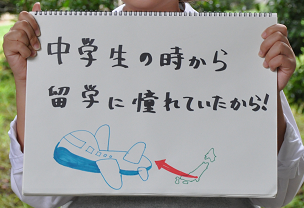 中学生の時から
留学に憧れていたから!